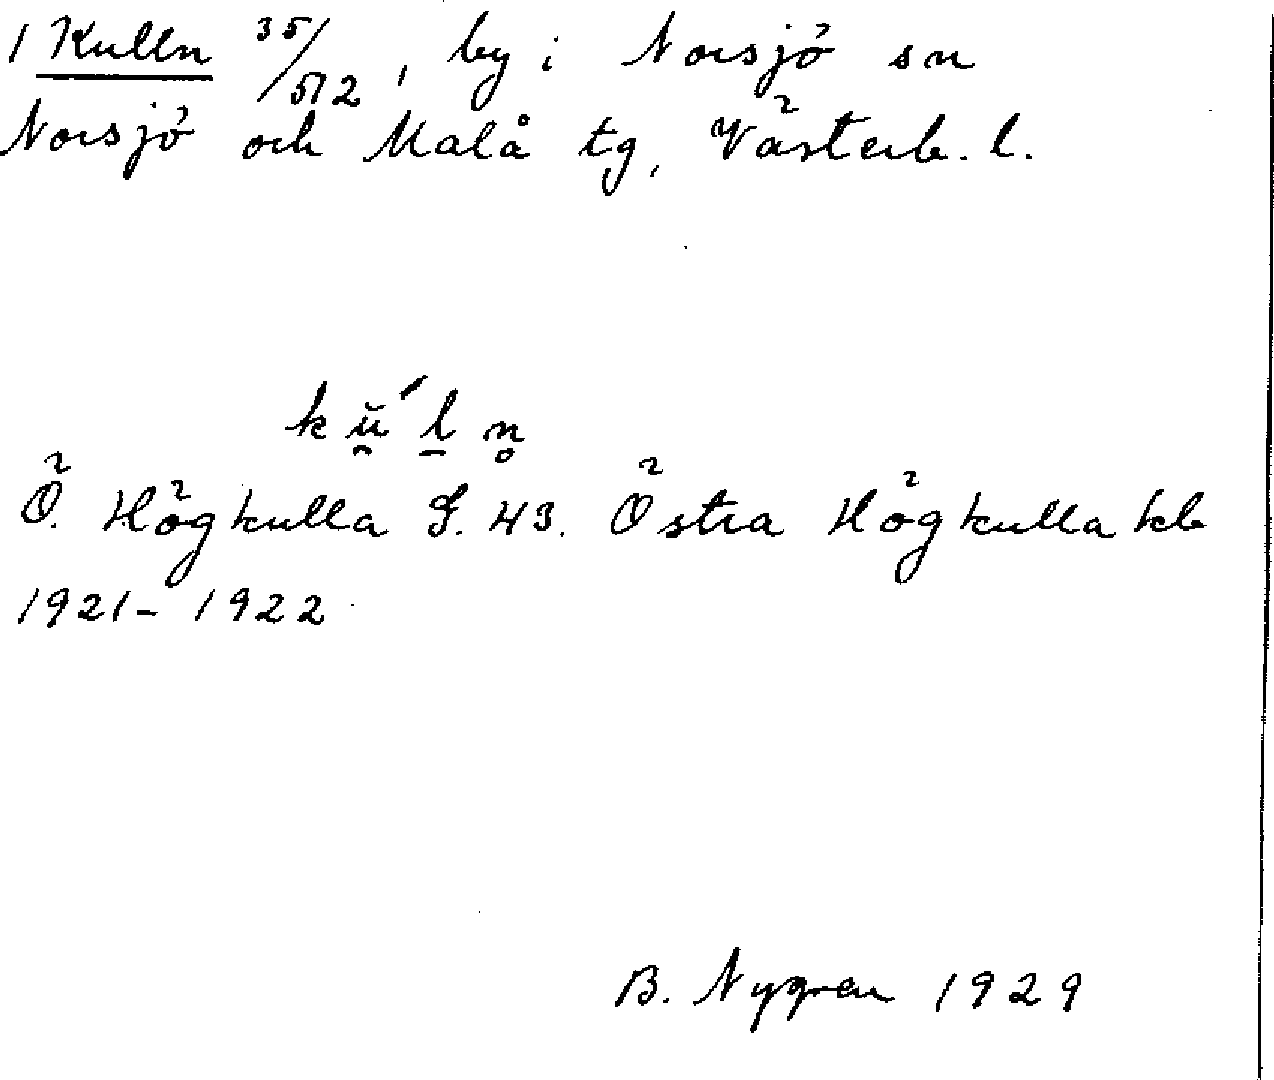 1 Kulln 35/512, by i Norsjö sn
Norsjö och Malå tg, Västerb. l.
kŭ̯́l̠n̥
Ö. Högkulla G. 43. Östra Högkulla kb
1921-1922
B. Nygren 1929